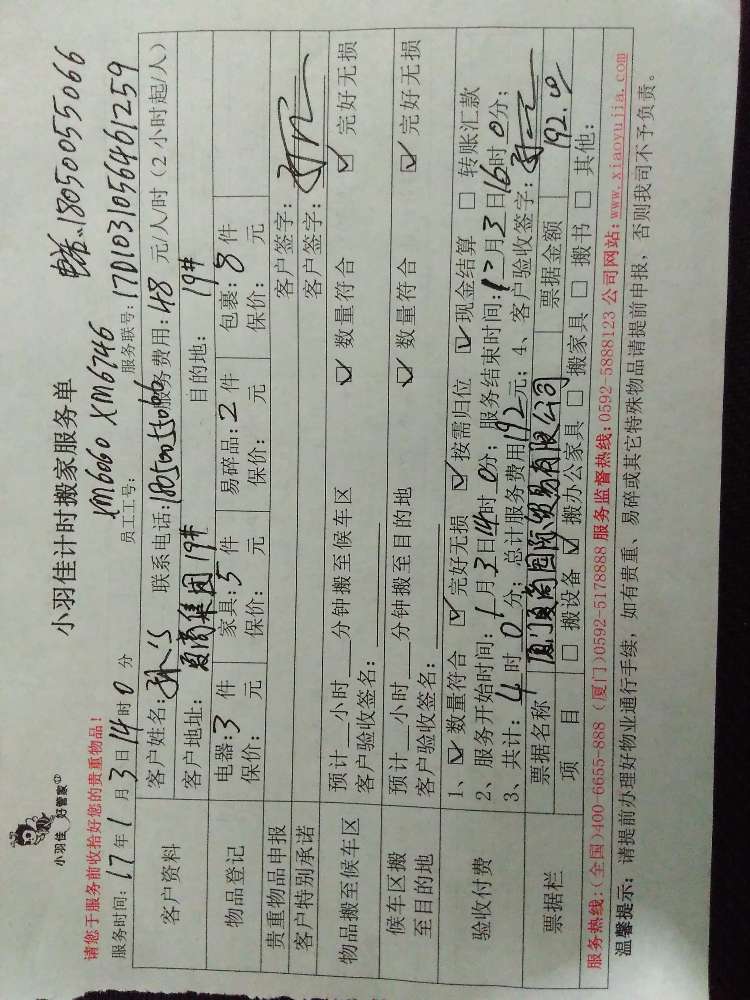 小羽佳 好管家
小羽佳计时搬家服务单
电话:18050055066
请您于服务前收拾好您的贵重物品!
员工工号: XM6060 XM6746
服务联号: 17D1031056461259
服务时间: 17年1月3日14时0分
客户资料
客户姓名: 联系电话:18050055066 服务费用:48元/人/时(2小时起/人)
客户地址: 夏商集团19# 目的地: 19#
物品登记
电器:3件 家具:5件 易碎品:2件 包裹:8件
保价: 元 保价: 元 保价: 元 保价: 元
贵重物品申报 客户签字:
客户特别承诺 客户签字:
物品搬至候车区
预计__小时__分钟搬至候车区 ☑ 数量符合 ☑ 完好无损
客户验收签名:
候车区搬至目的地
预计__小时__分钟搬至目的地 ☑ 数量符合 ☑ 完好无损
客户验收签名:
验收付费
1、☑ 数量符合 ☑ 完好无损 ☑ 按需归位 ☑ 现金结算 □ 转账汇款
2、服务开始时间:1月3日14时0分; 服务结束时间:1月3日16时0分;
3、共计:4时0分; 总计服务费用192元; 4、客户验收签字:
票据栏
票据名称 厦门夏商国际贸易有限公司 票据金额 192.00
项目 □ 搬设备 ☑ 搬办公家具 □ 搬家具 □ 搬书 □ 其他:
服务热线:(全国)400-6655-888 (厦门)0592-5178888 服务监督热线:0592-5888123 公司网站:www.xiaoyujia.com
温馨提示: 请提前办理好物业通行手续, 如有贵重、易碎或其它特殊物品请提前申报, 否则我司不予负责。